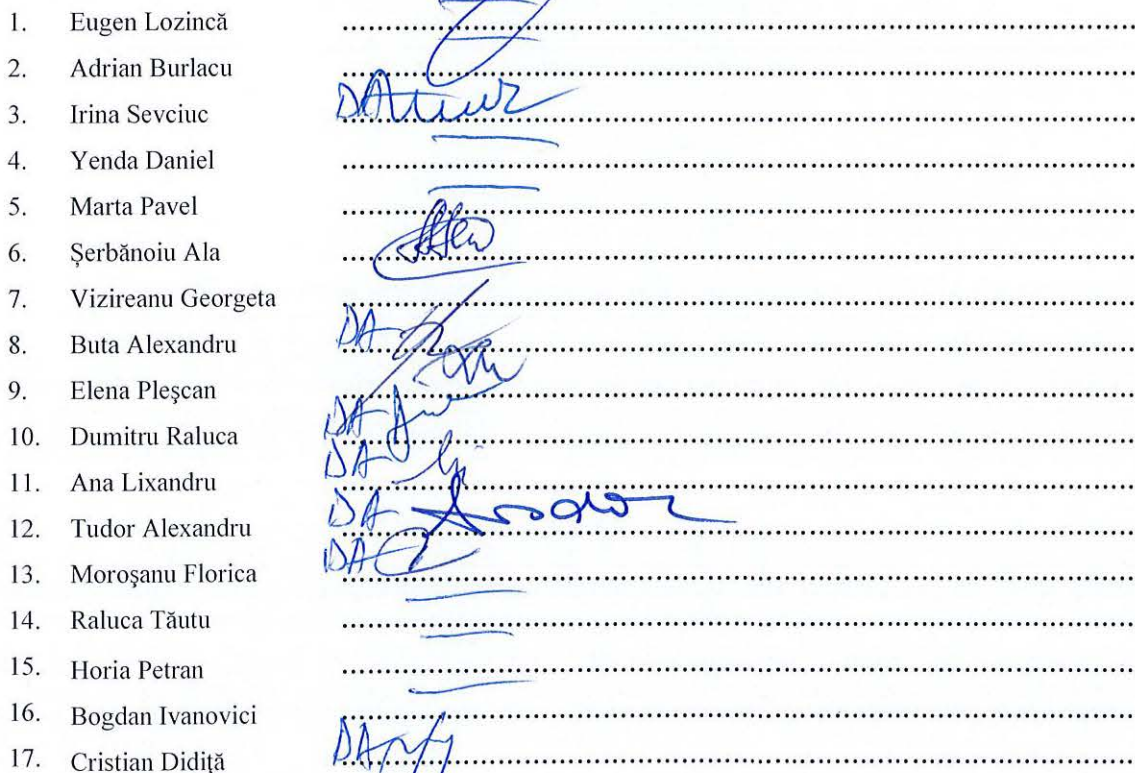 1. Eugen Lozincă
2. Adrian Burlacu
3. Irina Sevciuc DA
4. Yenda Daniel
5. Marta Pavel
6. Șerbănoiu Ala
7. Vizireanu Georgeta
8. Buta Alexandru DA
9. Elena Pleșcan
10. Dumitru Raluca DA
11. Ana Lixandru DA
12. Tudor Alexandru DA
13. Moroşanu Florica DA
14. Raluca Tăutu
15. Horia Petran
16. Bogdan Ivanovici
17. Cristian Didiță DA